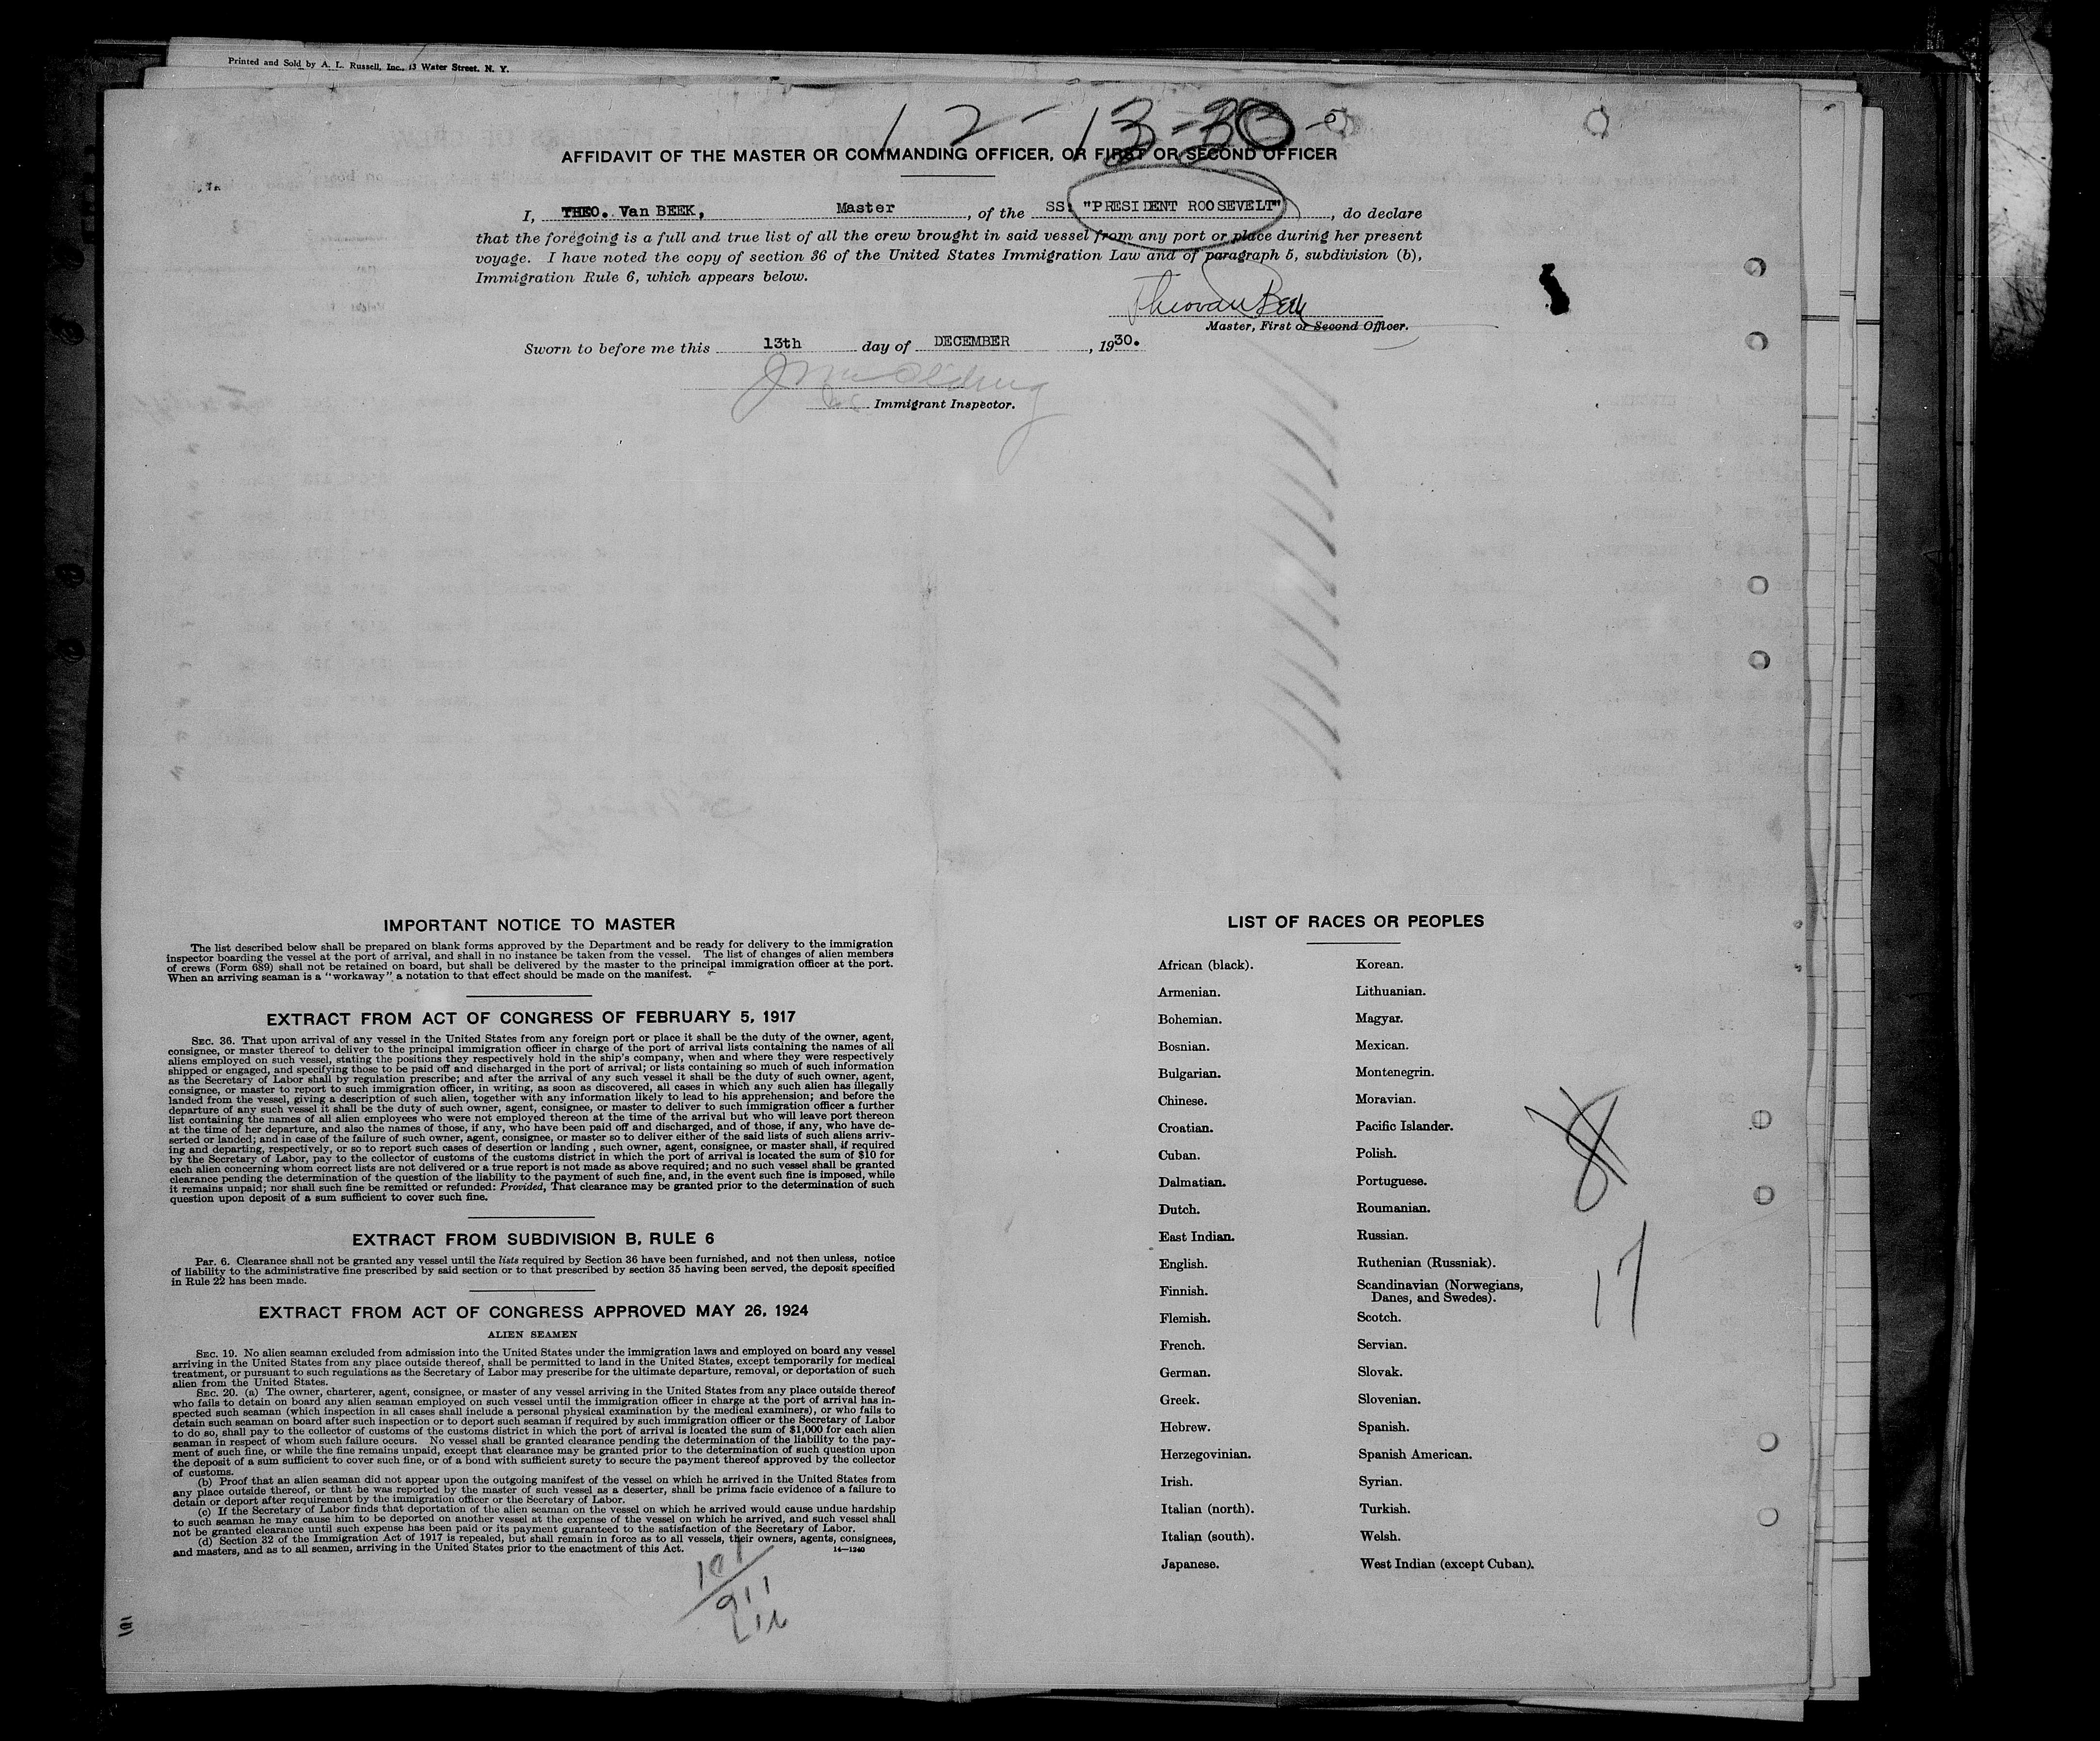 Printed and Sold by A. L. Russell, Inc., 13 Water Street, N. Y.
12-13-30-
AFFIDAVIT OF THE MASTER OR COMMANDING OFFICER, OR FIRST OR SECOND OFFICER
I, THEO. Van BEEK, Master, of the SS. "PRESIDENT ROOSEVELT", do declare
that the foregoing is a full and true list of all the crew brought in said vessel from any port or place during her present
voyage. I have noted the copy of section 36 of the United States Immigration Law and of paragraph 5, subdivision (b),
Immigration Rule 6, which appears below.
Theo van Beek
Master, First or Second Officer.
Sworn to before me this 13th day of DECEMBER, 1930.
Immigrant Inspector.
IMPORTANT NOTICE TO MASTER
The list described below shall be prepared on blank forms approved by the Department and be ready for delivery to the immigration
inspector boarding the vessel at the port of arrival, and shall in no instance be taken from the vessel. The list of changes of alien members
of crews (Form 689) shall not be retained on board, but shall be delivered by the master to the principal immigration officer at the port.
When an arriving seaman is a "workaway" a notation to that effect should be made on the manifest.
EXTRACT FROM ACT OF CONGRESS OF FEBRUARY 5, 1917
SEC. 36. That upon arrival of any vessel in the United States from any foreign port or place it shall be the duty of the owner, agent,
consignee, or master thereof to deliver to the principal immigration officer in charge of the port of arrival lists containing the names of all
aliens employed on such vessel, stating the positions they respectively hold in the ship's company, when and where they were respectively
shipped or engaged, and specifying those to be paid off and discharged in the port of arrival; or lists containing so much of such information
as the Secretary of Labor shall by regulation prescribe; and after the arrival of any such vessel it shall be the duty of such owner, agent,
consignee, or master to report to such immigration officer, in writing, as soon as discovered, all cases in which any such alien has illegally
landed from the vessel, giving a description of such alien, together with any information likely to lead to his apprehension; and before the
departure of any such vessel it shall be the duty of such owner, agent, consignee, or master to deliver to such immigration officer a further
list containing the names of all alien employees who were not employed thereon at the time of the arrival but who will leave port thereon
at the time of her departure, and also the names of those, if any, who have been paid off and discharged, and of those, if any, who have de-
serted or landed; and in case of the failure of such owner, agent, consignee, or master so to deliver either of the said lists of such aliens arriv-
ing and departing, respectively, or so to report such cases of desertion or landing , such owner, agent, consignee, or master shall, if required
by the Secretary of Labor, pay to the collector of customs of the customs district in which the port of arrival is located the sum of $10 for
each alien concerning whom correct lists are not delivered or a true report is not made as above required; and no such vessel shall be granted
clearance pending the determination of the question of the liability to the payment of such fine, and, in the event such fine is imposed, while
it remains unpaid; nor shall such fine be remitted or refunded: Provided, That clearance may be granted prior to the determination of such
question upon deposit of a sum sufficient to cover such fine.
EXTRACT FROM SUBDIVISION B, RULE 6
Par. 6. Clearance shall not be granted any vessel until the lists required by Section 36 have been furnished, and not then unless, notice
of liability to the administrative fine prescribed by said section or to that prescribed by section 35 having been served, the deposit specified
in Rule 22 has been made.
EXTRACT FROM ACT OF CONGRESS APPROVED MAY 26, 1924
ALIEN SEAMEN
SEC. 19. No alien seaman excluded from admission into the United States under the immigration laws and employed on board any vessel
arriving in the United States from any place outside thereof, shall be permitted to land in the United States, except temporarily for medical
treatment, or pursuant to such regulations as the Secretary of Labor may prescribe for the ultimate departure, removal, or deportation of such
alien from the United States.
SEC. 20. (a) The owner, charterer, agent, consignee, or master of any vessel arriving in the United States from any place outside thereof
who fails to detain on board any alien seaman employed on such vessel until the immigration officer in charge at the port of arrival has in-
spected such seaman (which inspection in all cases shall include a personal physical examination by the medical examiners), or who fails to
detain such seaman on board after such inspection or to deport such seaman if required by such immigration officer or the Secretary of Labor
to do so, shall pay to the collector of customs of the customs district in which the port of arrival is located the sum of $1,000 for each alien
seaman in respect of whom such failure occurs. No vessel shall be granted clearance pending the determination of the liability to the pay-
ment of such fine, or while the fine remains unpaid, except that clearance may be granted prior to the determination of such question upon
the deposit of a sum sufficient to cover such fine, or of a bond with sufficient surety to secure the payment thereof approved by the collector
of customs.
(b) Proof that an alien seaman did not appear upon the outgoing manifest of the vessel on which he arrived in the United States from
any place outside thereof, or that he was reported by the master of such vessel as a deserter, shall be prima facie evidence of a failure to
detain or deport after requirement by the immigration officer or the Secretary of Labor.
(c) If the Secretary of Labor finds that deportation of the alien seaman on the vessel on which he arrived would cause undue hardship
to such seaman he may cause him to be deported on another vessel at the expense of the vessel on which he arrived, and such vessel shall
not be granted clearance until such expense has been paid or its payment guaranteed to the satisfaction of the Secretary of Labor.
(d) Section 32 of the Immigration Act of 1917 is repealed, but shall remain in force as to all vessels, their owners, agents, consignees,
and masters, and as to all seamen, arriving in the United States prior to the enactment of this Act. 14—1240
LIST OF RACES OR PEOPLES
African (black). Korean.
Armenian. Lithuanian.
Bohemian. Magyar.
Bosnian. Mexican.
Bulgarian. Montenegrin.
Chinese. Moravian.
Croatian. Pacific Islander.
Cuban. Polish.
Dalmatian. Portuguese.
Dutch. Roumanian.
East Indian. Russian.
English. Ruthenian (Russniak).
Finnish. Scandinavian (Norwegians,
Danes, and Swedes).
Flemish. Scotch.
French. Servian.
German. Slovak.
Greek. Slovenian.
Hebrew. Spanish.
Herzegovinian. Spanish American.
Irish. Syrian.
Italian (north). Turkish.
Italian (south). Welsh.
Japanese. West Indian (except Cuban).
17